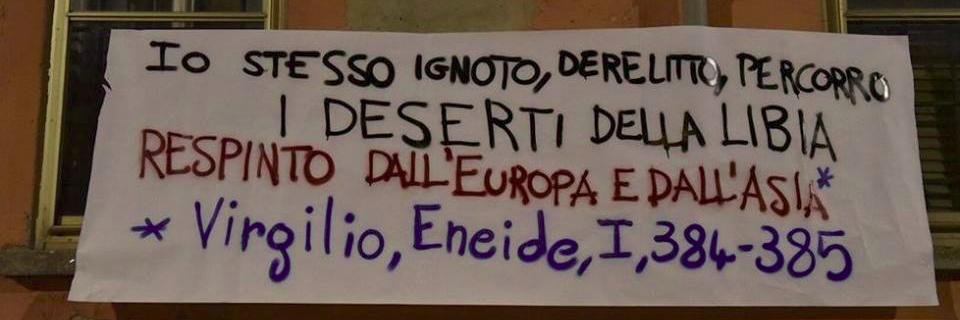 Io STESSO IGNOTO, DERELITTO, PERCORRO
I DESERTI DELLA LIBIA
RESPINTO DALL'EUROPA E DALL'ASIA*
* Virgilio, Eneide, I, 384-385